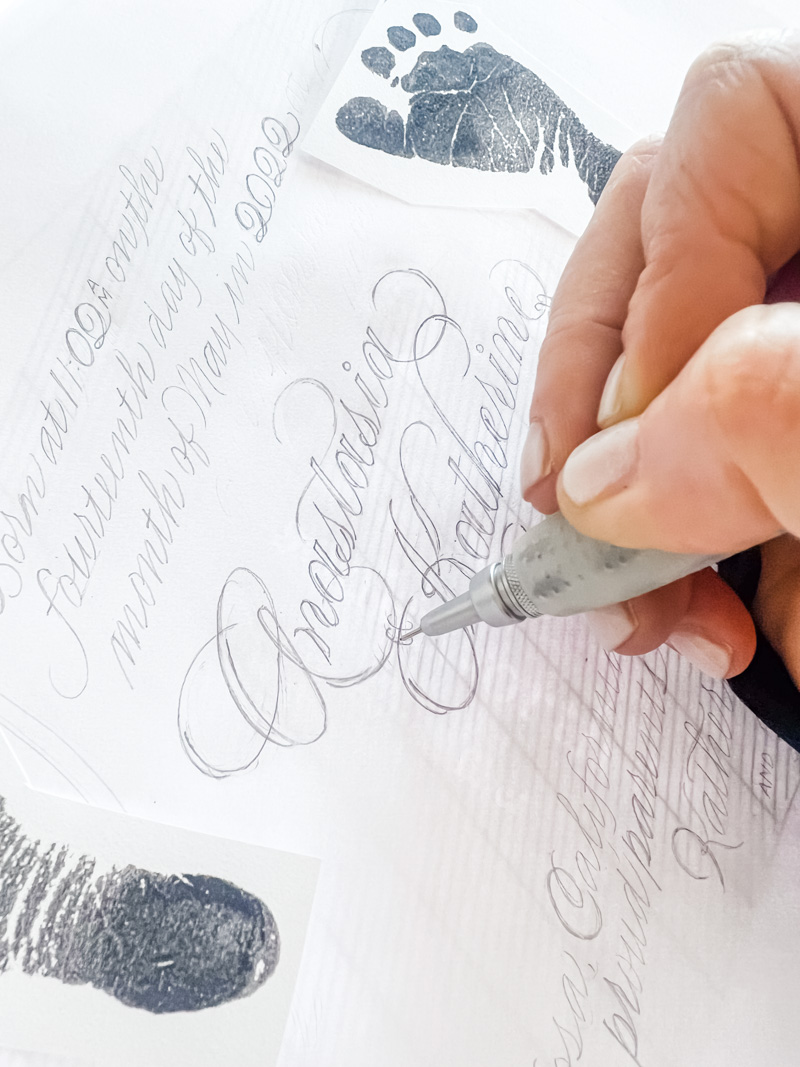 Born at 11:02 AM on the
fourteenth day of the
month of May in 2022
Anastasia
Katherine
Califor
proud parent
Kather
AND